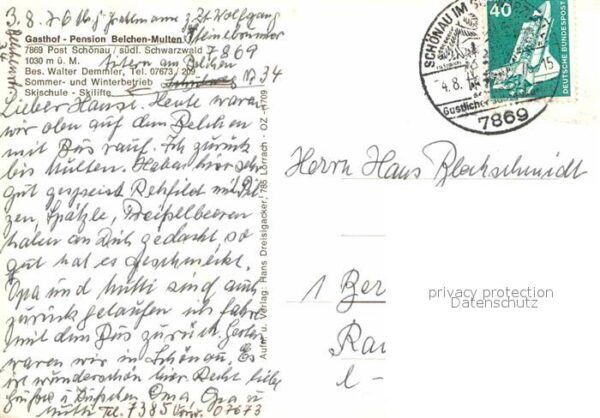 3. 8. 76
Wolfgang
Steinbrunner
Gasthof - Pension Belchen-Multen
7869 Post Schönau / südl. Schwarzwald
7869
1030 m ü. M.
Aitern am Belchen
Bes. Walter Demmler, Tel. 07673 / 209
Sommer- und Winterbetrieb
Nr 34
Skischule - Skilifte
Lieber Hansi. Heute waren
wir oben auf dem Belchen
mit Bus rauf. Ich zurück
bis Multen. Haben hier sehr
gut gespeist Rehfilet mit Pil
zen, Spätzle, Preißelbeeren
haben an Dich gedacht, so
gut hat es geschmeckt.
Opa und Mutti sind auch
zurück gelaufen ich fahre
mit dem Bus zurück. Gestern
waren wir in Schönau. Es
ist wunderschön hier. Recht liebe
Grüße u Küßchen Oma, Opa u
Mutti Tel. 7385 Vorw. 07673
Aufn. u. Verlag: Hans Dreisigacker, 785 Lörrach - OZ -
SCHÖNAU IM
4.8.
15
7869
40
DEUTSCHE BUNDESPOST
Herrn Hans Blockschmidt
1 Ber
privacy protection
Datenschutz